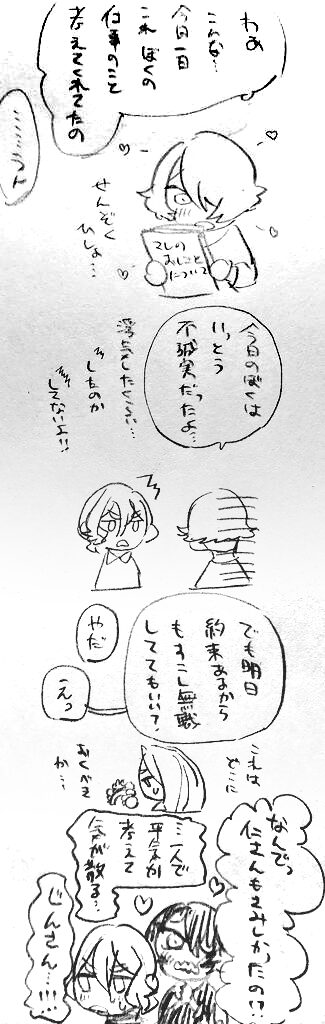 わあ
こんな…
今日一日
これぼくの
仕事のこと
考えてくれてたの
せんぞく
ひしょ…
これの
おしごと
について
今日のぼくは
いっとう
不誠実だったよ…
浮気したくらい…
したのか
してないよ!!
でも明日
約束あるから
もすこし無職
しててもいい?
やだ
えっ
これは
どこに
おくべき
か…
なんでっ
仁さんもさみしかったの!?
三人で
平気か
考えて
気が散る…
じんさん…!!!